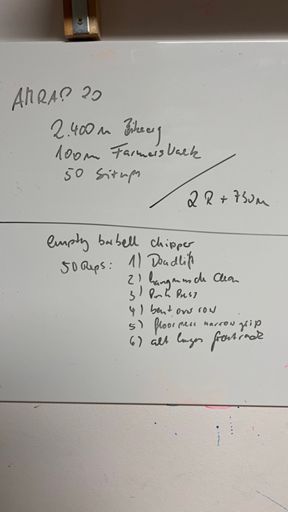 AMRAP 20
2.400m Bikeerg
100m Farmerswalk
50 Situps
2 R + 750m
empty barbell chipper
50 Reps: 1) Deadlift
2) hang muscle clean
3) Push Press
4) bent over row
5) floorpress narrow grip
6) alt lunges frontrack